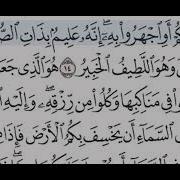 كُمْ أَوِ ٱجْهَرُوا۟ بِهِۦٓ ۖ إِنَّهُۥ عَلِيمٌۢ بِذَاتِ ٱلصُّ
وَهُوَ ٱللَّطِيفُ ٱلْخَبِيرُ ١٤ هُوَ ٱلَّذِى جَعَ
فِى مَنَاكِبِهَا وَكُلُوا۟ مِن رِّزْقِهِۦ ۖ وَإِلَيْهِ
ٱلسَّمَآءِ أَن يَخْسِفَ بِكُمُ ٱلْأَرْضَ فَإِذَا